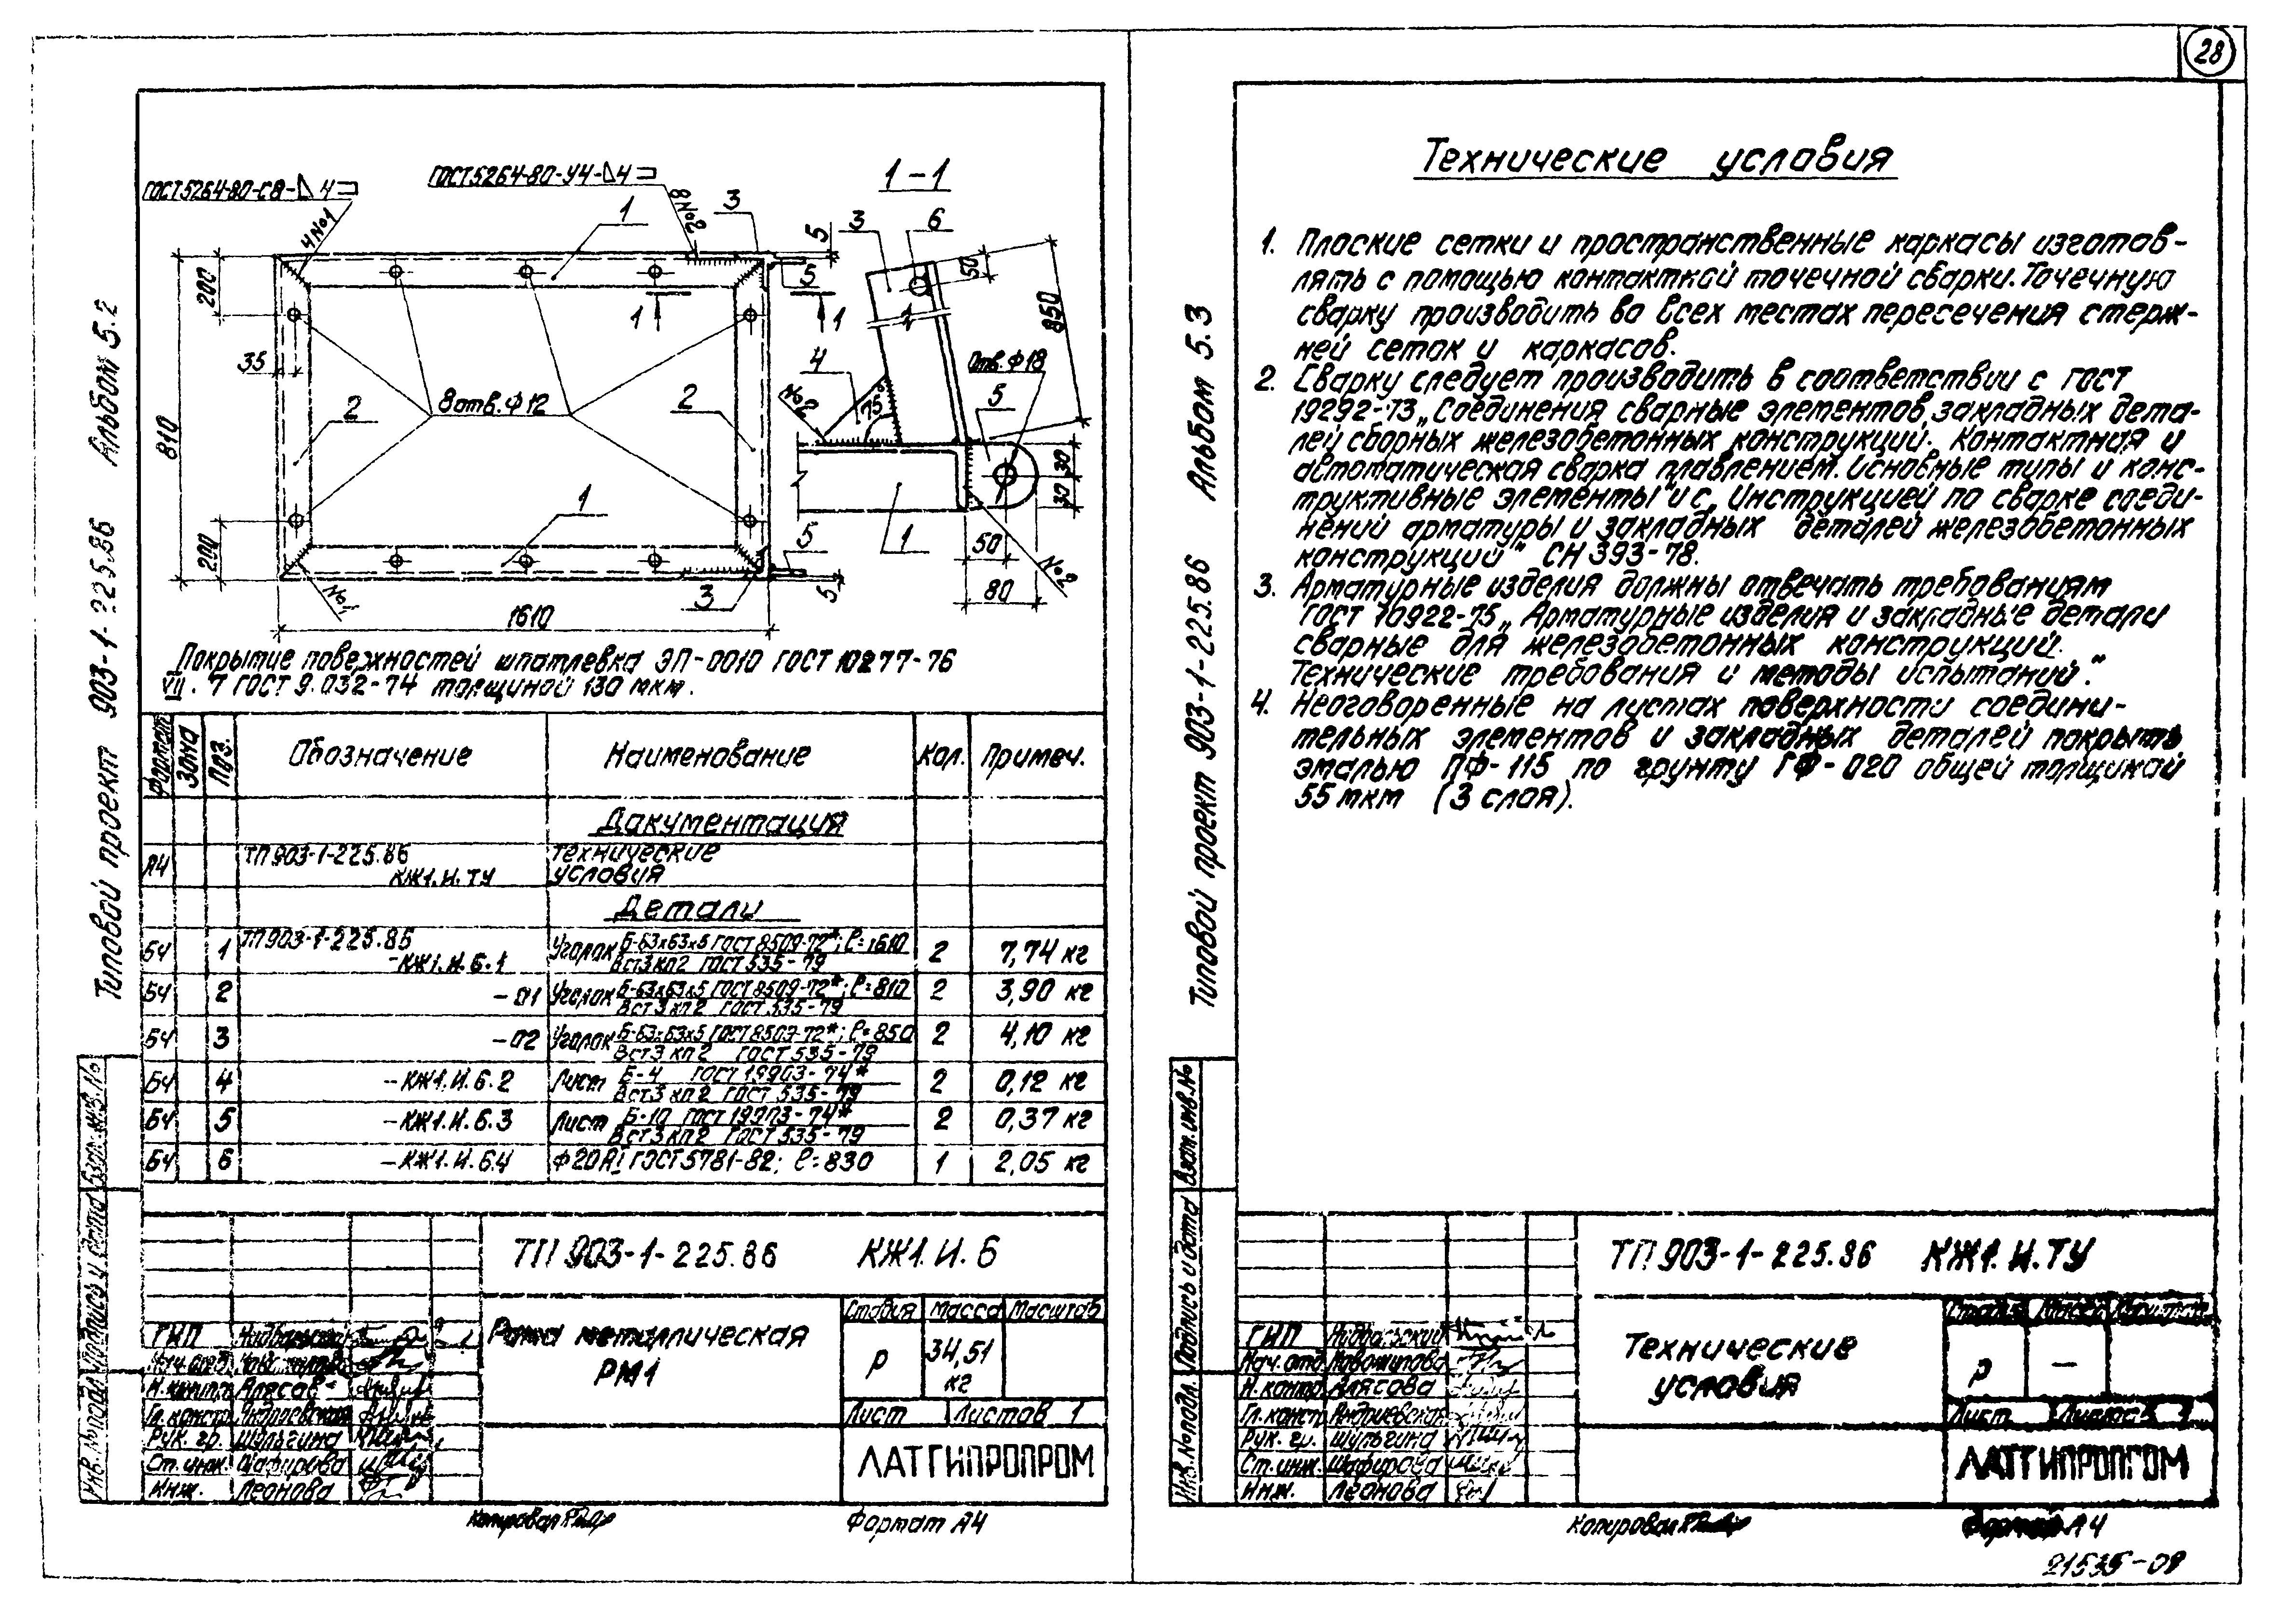 28
Типовой проект 903-1-225.86 Альбом 5.2
ГОСТ 5264-80-С8-⊿4
ГОСТ 5264-80-У4-⊿4
1-1
4 №1
8 №2
1
3
5
5
3
6
50
850
200
35
810
1
1
4
№2
75
Отв.Ф18
5
2
8 отв. Ф12
2
30
30
1
200
5
50
1
№2
№1
3
5
80
1610
Покрытие поверхностей шпатлевка ЭП-0010 ГОСТ 10277-76
VII. 7 ГОСТ 9.032-74 толщиной 130 мкм.
Формат Зона Поз. Обозначение Наименование Кол. Примеч.
Документация
А4 ТП 903-1-225.86 Технические
КЖ1.И.ТУ условия
Детали
БЧ 1 ТП 903-1-225.86 Уголок Б-63х63х5 ГОСТ 8509-72*; ℓ=1610 2 7,74 кг
-КЖ1.И.6.1 Вст3кп2 ГОСТ 535-79
БЧ 2 -01 Уголок Б-63х63х5 ГОСТ 8509-72*; ℓ=810 2 3,90 кг
Вст3кп2 ГОСТ 535-79
БЧ 3 -02 Уголок Б-63х63х5 ГОСТ 8509-72*; ℓ=850 2 4,10 кг
Вст3кп2 ГОСТ 535-79
БЧ 4 -КЖ1.И.6.2 Лист Б-4 ГОСТ 19903-74* 2 0,12 кг
Вст3кп2 ГОСТ 535-79
БЧ 5 -КЖ1.И.6.3 Лист Б-10 ГОСТ 19903-74* 2 0,37 кг
Вст3кп2 ГОСТ 535-79
БЧ 6 -КЖ1.И.6.4 Ф20АI ГОСТ 5781-82; ℓ=830 1 2,05 кг
Инв.№ подл. Подпись и дата Взам.инв.№
ТП 903-1-225.86 КЖ1.И.6
Рама металлическая
РМ1
Стадия Масса Масштаб
Р 34,51
кг
Лист Листов 1
ЛАТГИПРОПРОМ
ГИП
Нач.отд.
Н.контр.
Гл.констр. Андриевская
Рук. гр. Шульгина
Ст.инж. Шафирова
Инж. Леонова
Копировал
Формат А4
Типовой проект 903-1-225.86 Альбом 5.3
Технические условия
1. Плоские сетки и пространственные каркасы изготов-
лять с помощью контактной точечной сварки. Точечную
сварку производить во всех местах пересечения стерж-
ней сеток и каркасов.
2. Сварку следует производить в соответствии с ГОСТ
19292-73 „Соединения сварные элементов закладных дета-
лей сборных железобетонных конструкций. Контактная и
автоматическая сварка плавлением. Основные типы и конс-
труктивные элементы" и с „Инструкцией по сварке соеди-
нений арматуры и закладных деталей железобетонных
конструкций" СН 393-78.
3. Арматурные изделия должны отвечать требованиям
ГОСТ 10922-75 „Арматурные изделия и закладные детали
сварные для железобетонных конструкций.
Технические требования и методы испытаний".
4. Неоговоренные на листах поверхности соедини-
тельных элементов и закладных деталей покрыть
эмалью ПФ-115 по грунту ГФ-020 общей толщиной
55 мкм (3 слоя).
Инв.№ подл. Подпись и дата Взам.инв.№
ТП 903-1-225.86 КЖ1.И.ТУ
Технические
условия
Стадия Масса Масштаб
Р —
Лист Листов 1
ЛАТГИПРОПРОМ
ГИП
Нач.отд. Новожилова
Н.контр. Алясова
Гл.конст. Андриевская
Рук. гр. Шульгина
Ст.инж. Шафирова
Инж. Леонова
Копировал
Формат А4
21535-09